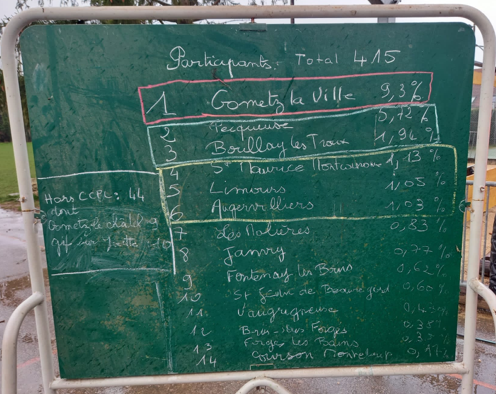 Participants. Total 415
1 Gometz la Ville 9,3%
2 Pecqueuse 5,72%
3 Boullay les Troux 1,94%
4 St Maurice Montcouronne 1,13%
5 Limours 1,05%
6 Angervilliers 1,03%
7 Les Molières 0,83%
8 Janvry 0,77%
9 Fontenay les Briis 0,62%
10 St Jean de Beauregard 0,60%
11 Vaugrigneuse
12 Briis sous Forges
Forges les Bains
14 Courson Monteloup
Hors CCPL: 44
dont
Gometz le châtel
gif sur yvette